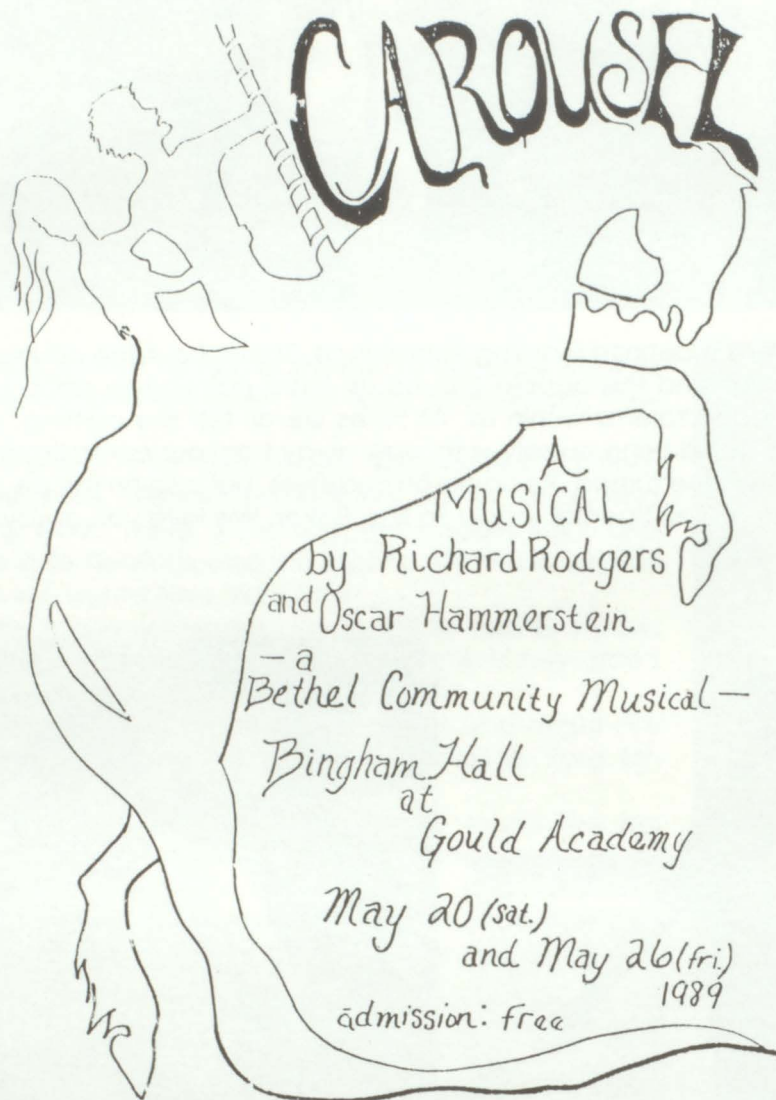 CAROUSEL
A
MUSICAL
by Richard Rodgers
and Oscar Hammerstein
— a
Bethel Community Musical —
Bingham Hall
at
Gould Academy
May 20 (sat.)
and May 26 (fri.)
1989
admission: free